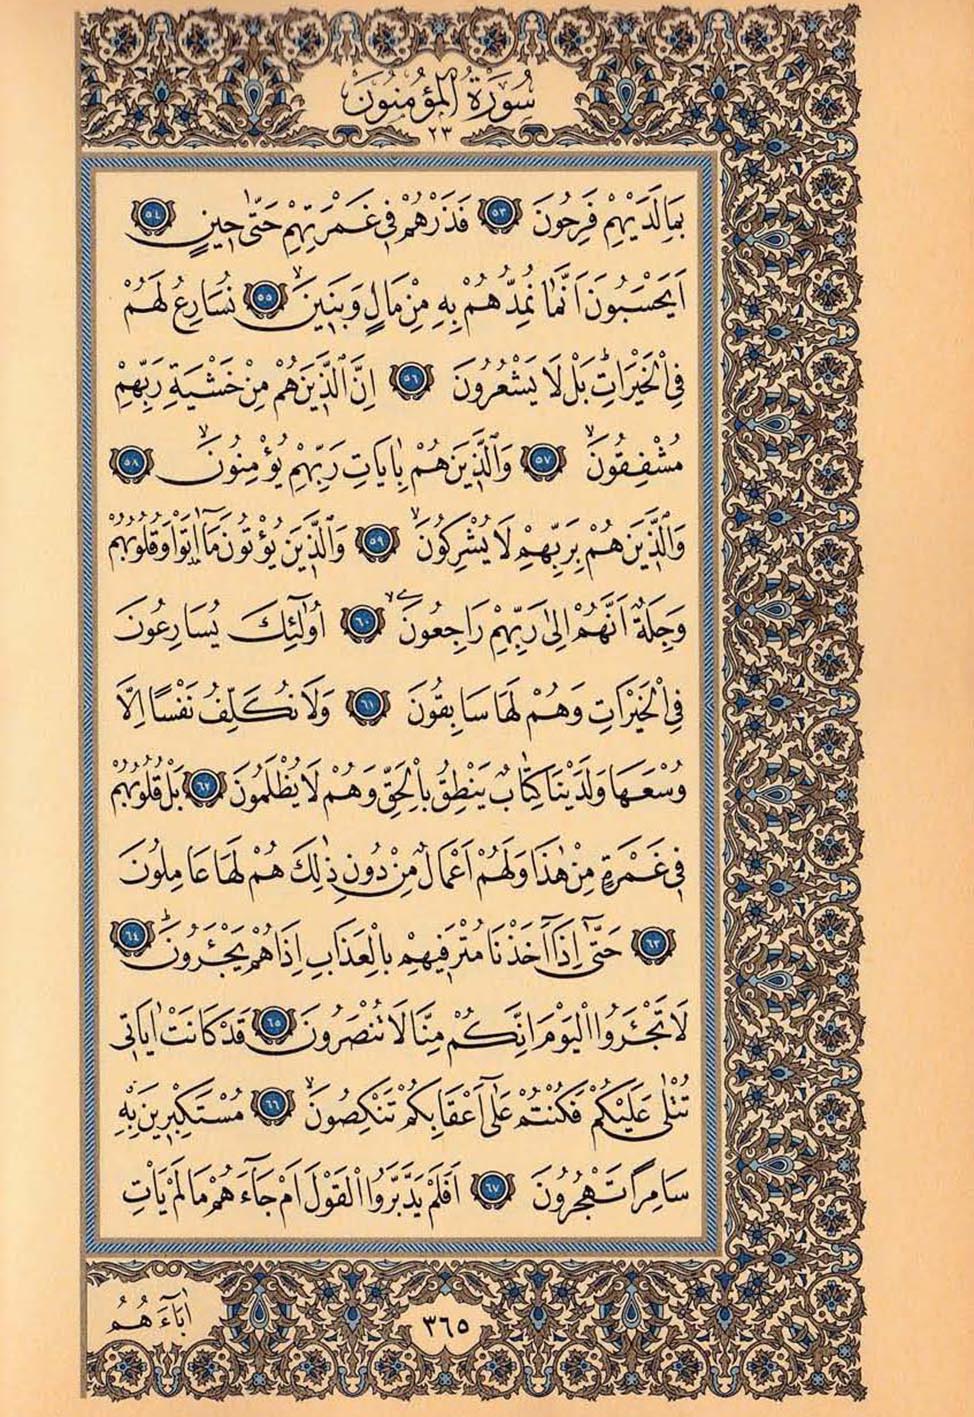 سُورَةُ الْمُؤْمِنُونَ
٢٣
بِمَا لَدَيْهِمْ فَرِحُونَ ٥٣ فَذَرْهُمْ فٖى غَمْرَتِهِمْ حَتّٰى حٖينٍ ٥٤
اَيَحْسَبُونَ اَنَّمَا نُمِدُّهُمْ بِهٖ مِنْ مَالٍ وَبَنٖينَ ٥٥ نُسَارِعُ لَهُمْ
فِى الْخَيْرَاتِ بَلْ لَا يَشْعُرُونَ ٥٦ اِنَّ الَّذٖينَ هُمْ مِنْ خَشْيَةِ رَبِّهِمْ
مُشْفِقُونَ ٥٧ وَالَّذٖينَ هُمْ بِاٰيَاتِ رَبِّهِمْ يُؤْمِنُونَ ٥٨
وَالَّذٖينَ هُمْ بِرَبِّهِمْ لَا يُشْرِكُونَ ٥٩ وَالَّذٖينَ يُؤْتُونَ مَٓا اٰتَوْا وَقُلُوبُهُمْ
وَجِلَةٌ اَنَّهُمْ اِلٰى رَبِّهِمْ رَاجِعُونَ ٦٠ اُولٰٓئِكَ يُسَارِعُونَ
فِى الْخَيْرَاتِ وَهُمْ لَهَا سَابِقُونَ ٦١ وَلَا نُكَلِّفُ نَفْسًا اِلَّا
وُسْعَهَا وَلَدَيْنَا كِتَابٌ يَنْطِقُ بِالْحَقِّ وَهُمْ لَا يُظْلَمُونَ ٦٢ بَلْ قُلُوبُهُمْ
فٖى غَمْرَةٍ مِنْ هٰذَا وَلَهُمْ اَعْمَالٌ مِنْ دُونِ ذٰلِكَ هُمْ لَهَا عَامِلُونَ
٦٣ حَتّٰٓى اِذَٓا اَخَذْنَا مُتْرَفٖيهِمْ بِالْعَذَابِ اِذَا هُمْ يَجْـَٔرُونَ ٦٤
لَا تَجْـَٔرُوا الْيَوْمَ اِنَّكُمْ مِنَّا لَا تُنْصَرُونَ ٦٥ قَدْ كَانَتْ اٰيَاتٖى
تُتْلٰى عَلَيْكُمْ فَكُنْتُمْ عَلٰٓى اَعْقَابِكُمْ تَنْكِصُونَ ٦٦ مُسْتَكْبِرٖينَ بِهٖ
سَامِرًا تَهْجُرُونَ ٦٧ اَفَلَمْ يَدَّبَّرُوا الْقَوْلَ اَمْ جَٓاءَهُمْ مَا لَمْ يَاْتِ
اٰبَٓاءَهُمُ
٣٦٥